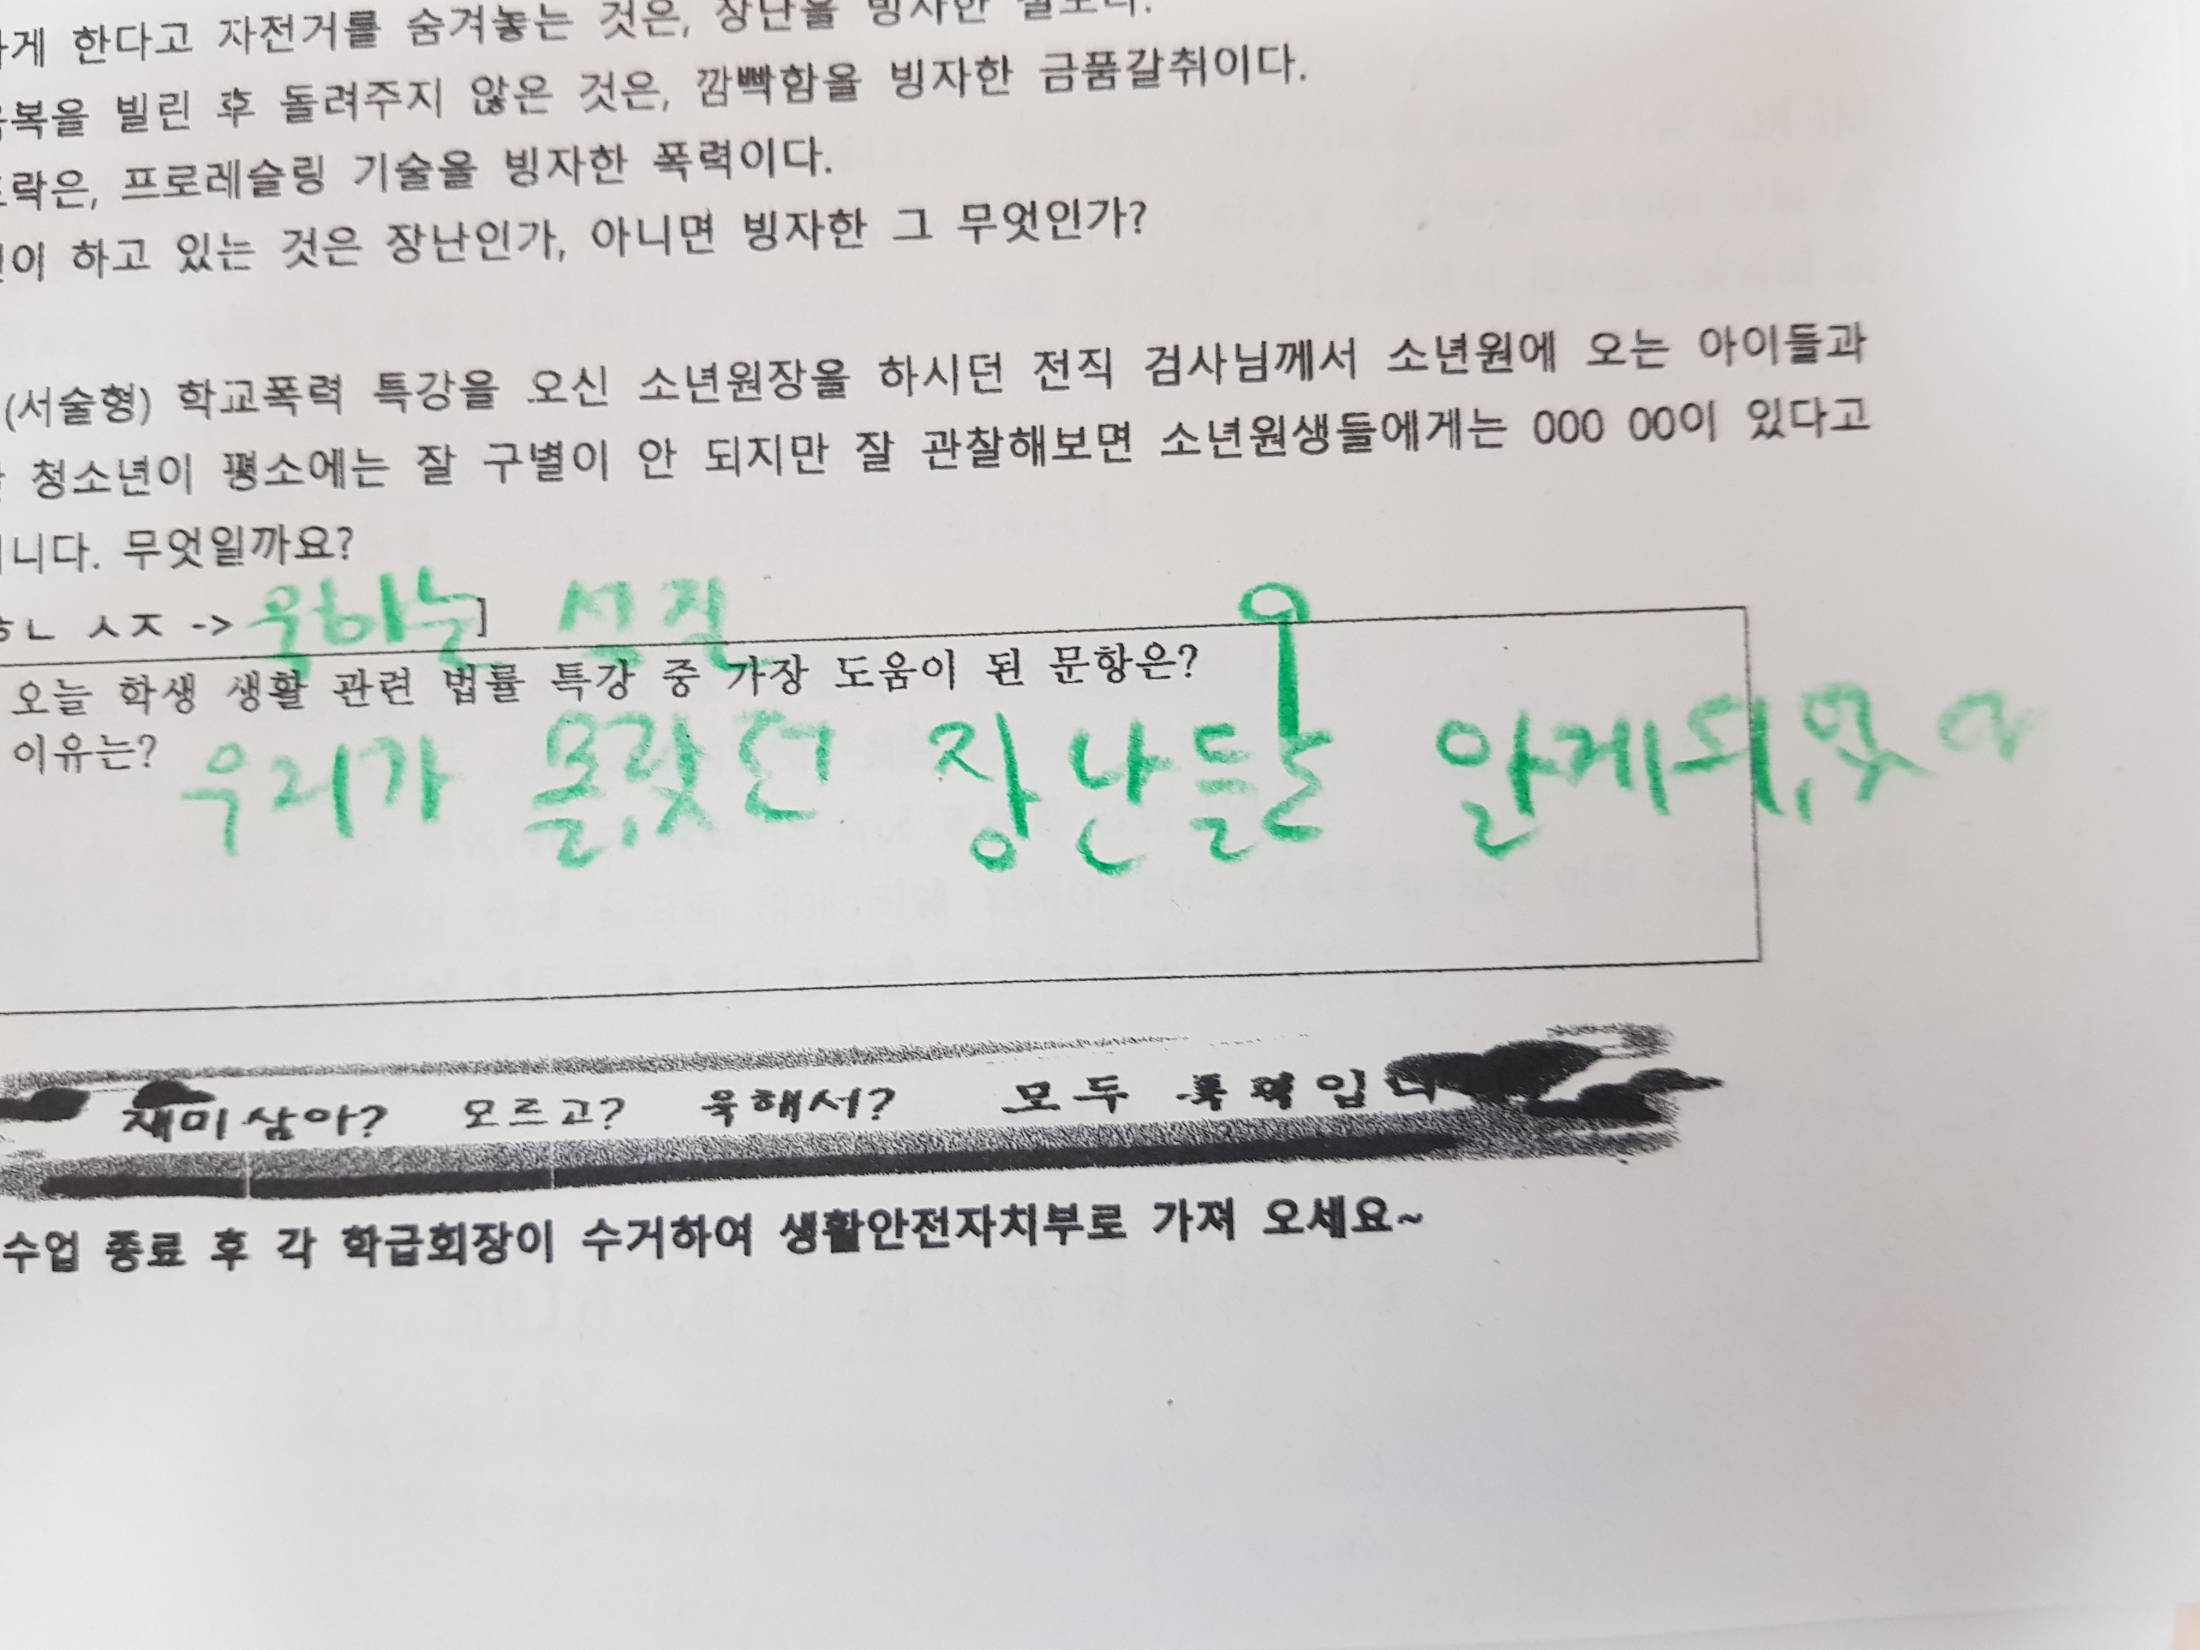 게 한다고 자전거를 숨겨놓는 것은, 장난을 빙자한
복을 빌린 후 돌려주지 않은 것은, 깜빡함을 빙자한 금품갈취이다.
락은, 프로레슬링 기술을 빙자한 폭력이다.
이 하고 있는 것은 장난인가, 아니면 빙자한 그 무엇인가?
(서술형) 학교폭력 특강을 오신 소년원장을 하시던 전직 검사님께서 소년원에 오는 아이들과
청소년이 평소에는 잘 구별이 안 되지만 잘 관찰해보면 소년원생들에게는 OOO OO이 있다고
니다. 무엇일까요?
ㅎㄴ ㅅㅈ -> 욱하는] 성질
오늘 학생 생활 관련 법률 특강 중 가장 도움이 된 문항은?
이유는?
우리가 몰랐던 장난들을 알게되었다
재미삼아? 모르고? 욱해서? 모두 폭력입니
수업 종료 후 각 학급회장이 수거하여 생활안전자치부로 가져 오세요~